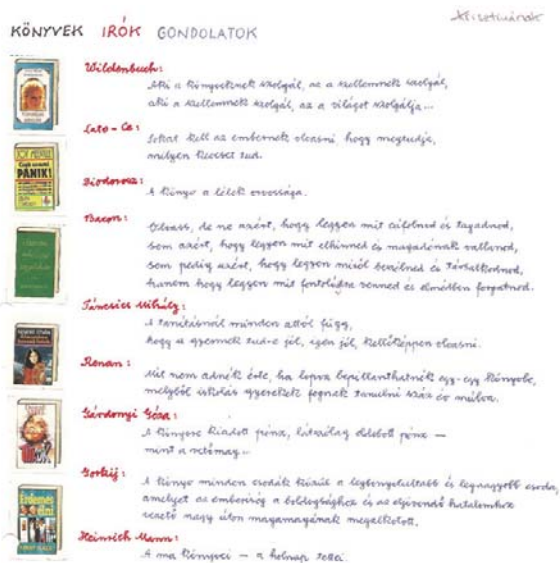 Krisztinának
KÖNYVEK ÍRÓK GONDOLATOK
Wildenbuch:
Aki a könyveknek szolgál, az a szellemnek szolgál,
aki a szellemnek szolgál, az a világot szolgálja...
Lao-Ce:
Sokat kell az embernek olvasni, hogy megtudja,
milyen keveset tud.
Diodorosz:
A könyv a lélek orvossága.
Bacon:
Olvass, de ne azért, hogy legyen mit cáfolnod és tagadnod,
sem azért, hogy legyen mit elhinned és magadénak vallanod,
sem pedig azért, hogy legyen miről beszélned és társalkodnod,
hanem hogy legyen mit fontolóra venned és elmédben forgatnod.
Táncsics Mihály:
A tanításnál minden attól függ,
hogy a gyermek tud-e jól, igen jól, kellőképpen olvasni.
Renan:
Mit nem adnék érte, ha lopva bepillanthatnék egy-egy könyvbe,
melyből iskolás gyerekek fognak tanulni száz év múlva.
Gárdonyi Géza:
A könyvre kiadott pénz, látszólag eldobott pénz —
mint a vetőmag...
Gorkij:
A könyv minden csodák közül a legbonyolultabb és legnagyobb csoda,
amelyet az emberiség a boldogsághoz és az eljövendő hatalomhoz
vezető nagy úton magamagának megalkotott.
Heinrich Mann:
A ma könyvei — a holnap tettei.
PÁNIK!
Érdemes élni